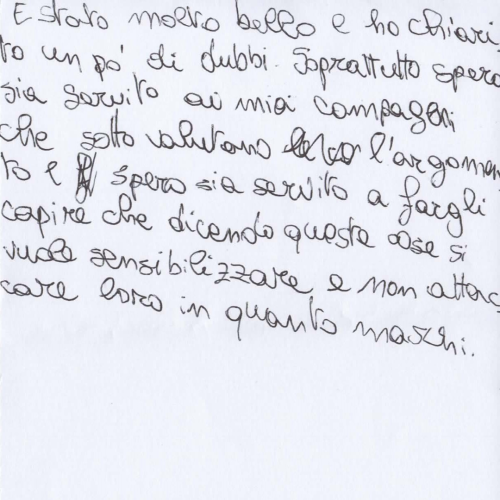 E stato molto bello e ho chiari
to un pò di dubbi. Soprattutto spero
sia servito ai miei compagni
che sotto valutano l'argomen
to e spero sia servito a fargli
capire che dicendo queste cose si
vuole sensibilizzare e non attac
care loro in quanto maschi.